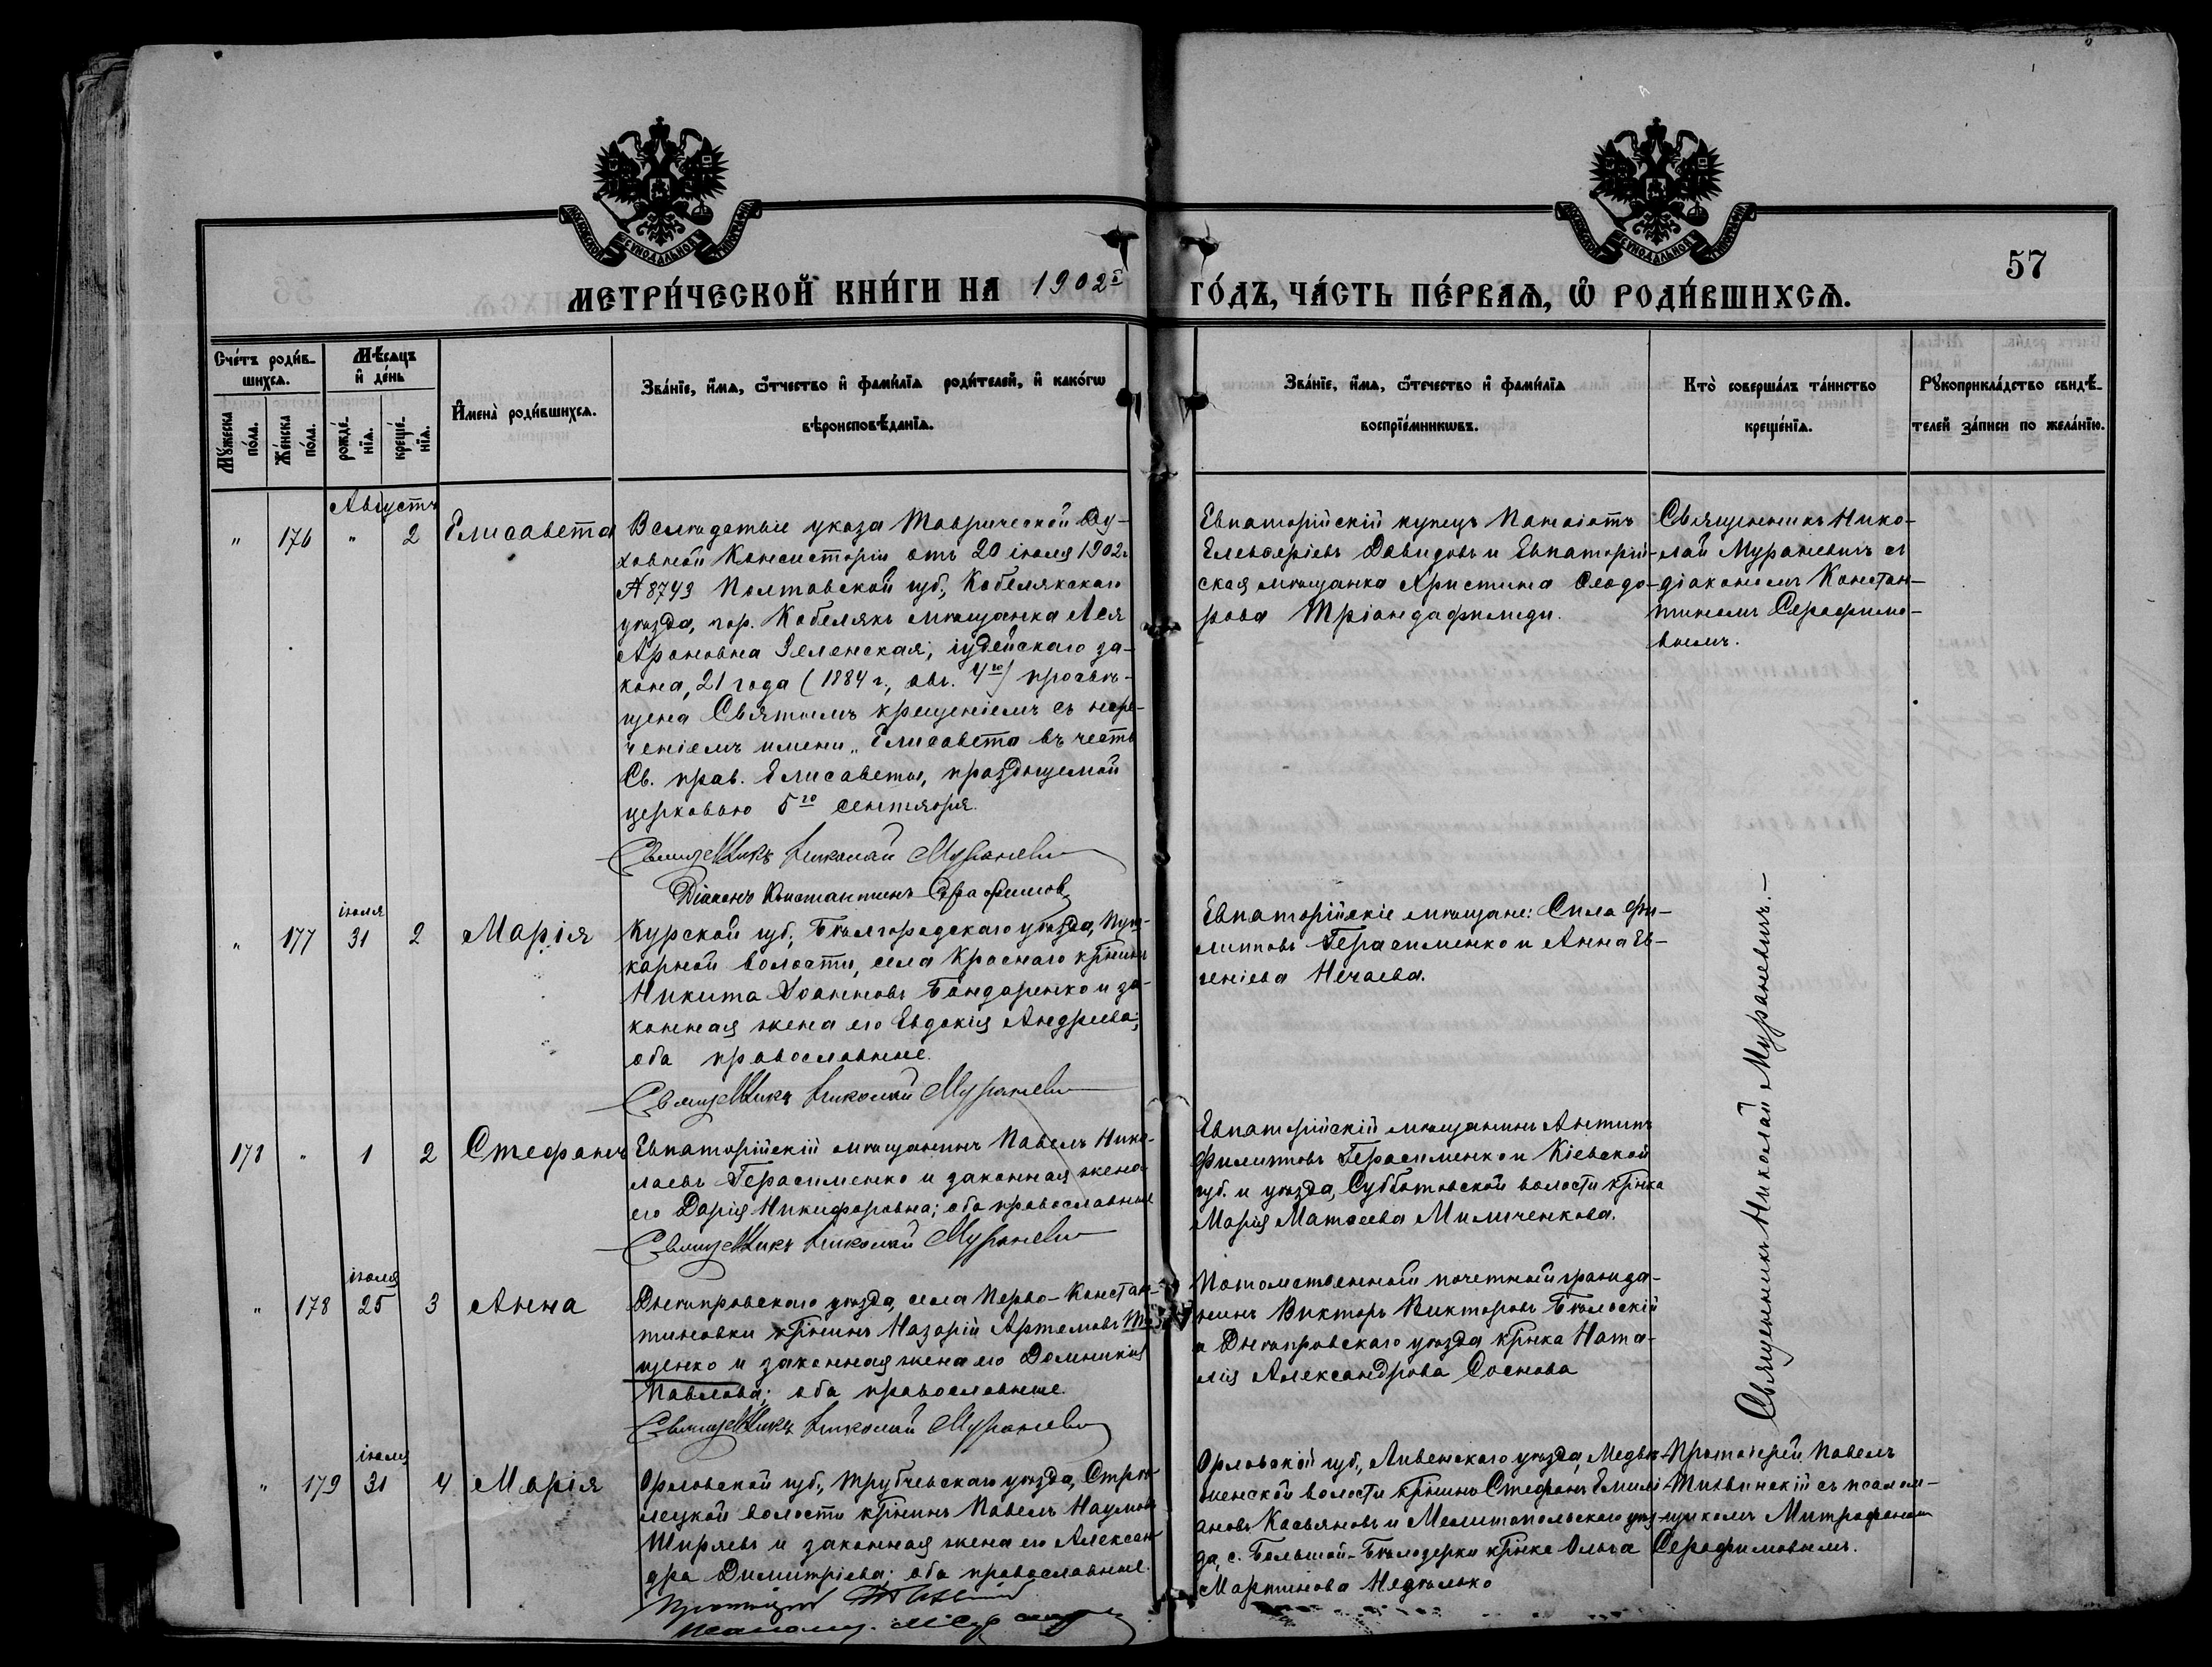 57
МЕТРИ́ЧЕСКОЙ КНИ́ГИ НА 1902й ГО́ДЪ, ЧА́СТЬ ПЕ́РВАѦ, Ѽ РОДИ́ВШИХСѦ.
Сче́тъ роди́в-
шихсѧ.
Мꙋжеска по́ла.
Же́нска по́ла.
Мѣ́сѧцъ
и҆ де́нь
рожде́-
нїѧ.
креще́-
нїѧ.
И҆мена̀ роди́вшихсѧ.
Зва́нїе, и҆́мѧ, ѻ҆́тчество и҆ фами́лїѧ роди́телей, и҆ како́гѡ
вѣроисповѣ́данїѧ.
Зва́нїе, и҆́мѧ, ѻ҆те́чество и҆ фами́лїѧ
воспрїе́мникѡвъ.
Кто̀ соверша́лъ та́инство
креще́нїѧ.
Рꙋкоприкла́дство свидѣ́-
телей за́писи по жела́нїю.
Августъ
" 176 " 2 Елисавета
Вслѣдствіе указа Таврической Ду-
ховной Консисторіи отъ 20 іюля 1902г
№ 8743 Полтавской губ., Кобелякскаго
уѣзда, гор. Кобелякъ мѣщанка Лея
Ароновна Зеленская, іудейскаго за-
кона, 21 года (1884 г., авг. 4го) просвѣ-
щена Святымъ крещеніемъ съ наре-
ченіемъ имени „Елисавета въ честь
Св. прав. Елисаветы, празднуемой
церковью 5го сентября.
Священникъ Николай Мураневичъ
Діаконъ Константинъ Серафимовъ
Евпаторійскій купецъ Панаіотъ
Елевферіевъ Давидовъ и Евпаторій-
ская мѣщанка Христина Ѳеодо-
рова Тріандафилиди.
Священникъ Нико-
лай Мураневичъ съ
діакономъ Констан-
тиномъ Серафимо-
вымъ.
іюля
" 177 31 2 Марія
Курской губ., Бѣлгородскаго уѣзда, Пуш-
карной волости, села Краснаго кр-нинъ
Никита Іоанновъ Бондаренко и за-
конная жена его Евдокія Андреева;
оба православные.
Священникъ Николай Мураневичъ
Евпаторійскіе мѣщане: Сила Фи-
липповъ Герасименко и Анна Ев-
геніева Нечаева.
Священникъ Николай Мураневичъ.
178 " 1 2 Стефанъ
Евпаторійскій мѣщанинъ Павелъ Нико-
лаевъ Герасименко и законная жена
его Дарія Никифоровна; оба православные
Священникъ Николай Мураневичъ
Евпаторійскій мѣщанинъ Антипъ
Филипповъ Герасименко и Кіевской
губ. и уѣзда, Субботовской волости кр-нка
Марія Матѳеева Мильченкова.
іюля
" 178 25 3 Анна
Днѣпровскаго уѣзда, села Перво-Констан-
тиновки кр-нинъ Назарій Артемовъ
щенко и законная жена его Домникія
Павлова; оба православные.
Священникъ Николай Мураневичъ
Потомственный почетный гражда-
нинъ Викторъ Викторовъ Бѣльскій
и Днѣпровскаго уѣзда кр-нка Ната-
лія Александрова Соснова
іюля
" 179 31 4 Марія
Орловской губ., Трубчевскаго уѣзда, Стрѣ-
лецкой волости кр-нинъ Павелъ Наумовъ
Ширяевъ и законная жена его Алексан-
дра Димитріева; оба православные.
Протоіерей
Псаломщ.
Орловской губ., Ливенскаго уѣзда, Медвѣ-
женской волости кр-нинъ Стефанъ Емилі-
ановъ Касьяновъ и Мелитопольскаго уѣз-
да, с. Большой-Бѣлозерки кр-нка Ольга
Мартинова Недѣлько
Протоіерей Павелъ
Тихвинскій съ псалом-
щикомъ Митрофаномъ
Серафимовымъ.